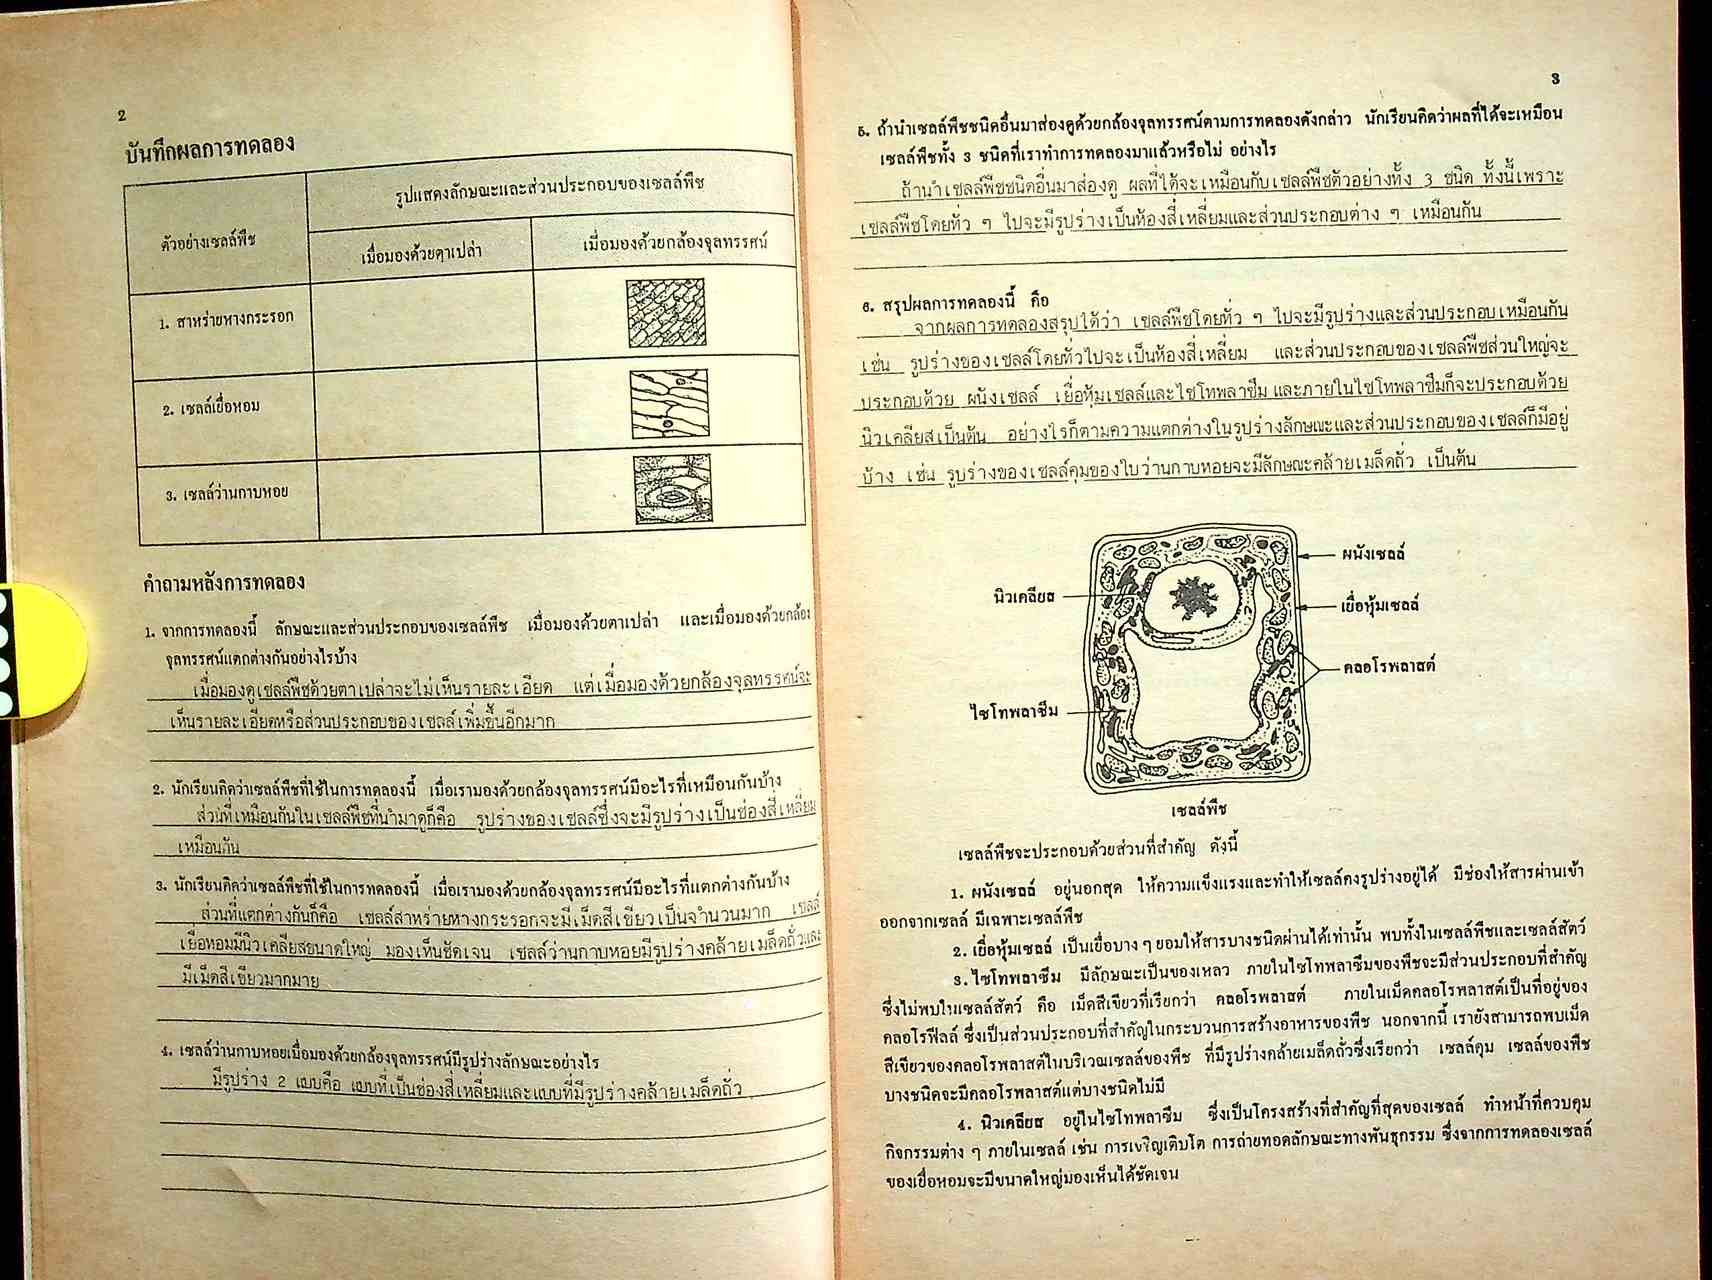 2
บันทึกผลการทดลอง
ตัวอย่างเซลล์พืช
รูปแสดงลักษณะและส่วนประกอบของเซลล์พืช
เมื่อมองด้วยตาเปล่า
เมื่อมองด้วยกล้องจุลทรรศน์
1. สาหร่ายหางกระรอก
2. เซลล์เยื่อหอม
3. เซลล์ว่านกาบหอย
คำถามหลังการทดลอง
1. จากการทดลองนี้ ลักษณะและส่วนประกอบของเซลล์พืช เมื่อมองด้วยตาเปล่า และเมื่อมองด้วยกล้อง
จุลทรรศน์แตกต่างกันอย่างไรบ้าง
เมื่อมองดูเซลล์พืชด้วยตาเปล่าจะไม่เห็นรายละเอียด แต่เมื่อมองด้วยกล้องจุลทรรศน์จะ
เห็นรายละเอียดหรือส่วนประกอบของเซลล์เพิ่มขึ้นอีกมาก
2. นักเรียนคิดว่าเซลล์พืชที่ใช้ในการทดลองนี้ เมื่อเรามองด้วยกล้องจุลทรรศน์มีอะไรที่เหมือนกันบ้าง
ส่วนที่เหมือนกันในเซลล์พืชที่นำมาดูก็คือ รูปร่างของเซลล์ซึ่งจะมีรูปร่างเป็นช่องสี่เหลี่ยม
เหมือนกัน
3. นักเรียนคิดว่าเซลล์พืชที่ใช้ในการทดลองนี้ เมื่อเรามองด้วยกล้องจุลทรรศน์มีอะไรที่แตกต่างกันบ้าง
ส่วนที่แตกต่างกันก็คือ เซลล์สาหร่ายหางกระรอกจะมีเม็ดสีเขียวเป็นจำนวนมาก เซลล์
เยื่อหอมมีนิวเคลียสขนาดใหญ่ มองเห็นชัดเจน เซลล์ว่านกาบหอยมีรูปร่างคล้ายเมล็ดถั่วและ
มีเม็ดสีเขียวมากมาย
4. เซลล์ว่านกาบหอยเมื่อมองด้วยกล้องจุลทรรศน์มีรูปร่างลักษณะอย่างไร
มีรูปร่าง 2 แบบคือ แบบที่เป็นช่องสี่เหลี่ยมและแบบที่มีรูปร่างคล้ายเมล็ดถั่ว
3
5. ถ้านำเซลล์พืชชนิดอื่นมาส่องดูด้วยกล้องจุลทรรศน์ตามการทดลองดังกล่าว นักเรียนคิดว่าผลที่ได้จะเหมือน
เซลล์พืชทั้ง 3 ชนิดที่เราทำการทดลองมาแล้วหรือไม่ อย่างไร
ถ้านำเซลล์พืชชนิดอื่นมาส่องดู ผลที่ได้จะเหมือนกับเซลล์พืชตัวอย่างทั้ง 3 ชนิด ทั้งนี้เพราะ
เซลล์พืชโดยทั่ว ๆ ไปจะมีรูปร่างเป็นห้องสี่เหลี่ยมและส่วนประกอบต่าง ๆ เหมือนกัน
6. สรุปผลการทดลองนี้ คือ
จากผลการทดลองสรุปได้ว่า เซลล์พืชโดยทั่ว ๆ ไปจะมีรูปร่างและส่วนประกอบเหมือนกัน
เช่น รูปร่างของเซลล์โดยทั่วไปจะเป็นห้องสี่เหลี่ยม และส่วนประกอบของเซลล์พืชส่วนใหญ่จะ
ประกอบด้วย ผนังเซลล์ เยื่อหุ้มเซลล์และไซโทพลาซึม และภายในไซโทพลาซึมก็จะประกอบด้วย
นิวเคลียสเป็นต้น อย่างไรก็ตามความแตกต่างในรูปร่างลักษณะและส่วนประกอบของเซลล์ก็มีอยู่
บ้าง เช่น รูปร่างของเซลล์คุมของใบว่านกาบหอยจะมีลักษณะคล้ายเมล็ดถั่ว เป็นต้น
ผนังเซลล์
นิวเคลียส
เยื่อหุ้มเซลล์
คลอโรพลาสต์
ไซโทพลาซึม
เซลล์พืช
เซลล์พืชจะประกอบด้วยส่วนที่สำคัญ ดังนี้
1. ผนังเซลล์ อยู่นอกสุด ให้ความแข็งแรงและทำให้เซลล์คงรูปร่างอยู่ได้ มีช่องให้สารผ่านเข้า
ออกจากเซลล์ มีเฉพาะเซลล์พืช
2. เยื่อหุ้มเซลล์ เป็นเยื่อบาง ๆ ยอมให้สารบางชนิดผ่านได้เท่านั้น พบทั้งในเซลล์พืชและเซลล์สัตว์
3. ไซโทพลาซึม มีลักษณะเป็นของเหลว ภายในไซโทพลาซึมของพืชจะมีส่วนประกอบที่สำคัญ
ซึ่งไม่พบในเซลล์สัตว์ คือ เม็ดสีเขียวที่เรียกว่า คลอโรพลาสต์ ภายในเม็ดคลอโรพลาสต์เป็นที่อยู่ของ
คลอโรฟีลล์ ซึ่งเป็นส่วนประกอบที่สำคัญในกระบวนการสร้างอาหารของพืช นอกจากนี้ เรายังสามารถพบเม็ด
สีเขียวของคลอโรพลาสต์ในบริเวณเซลล์ของพืช ที่มีรูปร่างคล้ายเมล็ดถั่วซึ่งเรียกว่า เซลล์คุม เซลล์ของพืช
บางชนิดจะมีคลอโรพลาสต์แต่บางชนิดไม่มี
4. นิวเคลียส อยู่ในไซโทพลาซึม ซึ่งเป็นโครงสร้างที่สำคัญที่สุดของเซลล์ ทำหน้าที่ควบคุม
กิจกรรมต่าง ๆ ภายในเซลล์ เช่น การเจริญเติบโต การถ่ายทอดลักษณะทางพันธุกรรม ซึ่งจากการทดลองเซลล์
ของเยื่อหอมจะมีขนาดใหญ่มองเห็นได้ชัดเจน